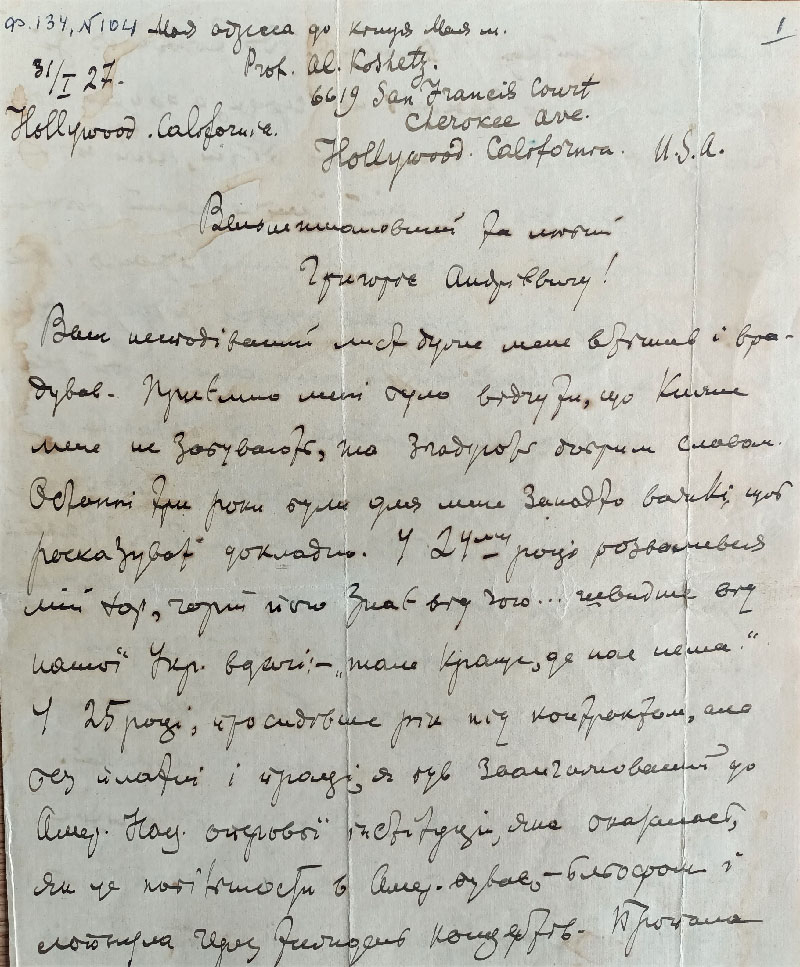 ф. 134, №104 Моя адреса до кінця мая м. 1
31/I 27.
Prof. Al. Koshetz.
6619 San Francis Court
Cherokee ave.
Hollywood. California.
Hollywood. California. U.S.A.
Вельмишановний та любий
Григоріє Андрієвичу!
Ваш несподіваний лист дуже мене втішив і вра-
дував. Приємно мені було відчути, що Кияне
мене не забувають, та згадують добрим словом.
Останні три роки були для мене занадто важкі, щоб
росказувать докладно. У 24му році розвалився
мій хор, чорт його знає від чого... швидше від
нашої Укр. вдачі: – „там краще, де нас нема."
У 25 році, просидівши рік під контрактом, але
без платні і праці, я був заангажований до
Амер. Нац. оперової інстітуції, яка оказалась,
як це в Амер. буває, – блюфом і
лопнула через тиждень концертів.